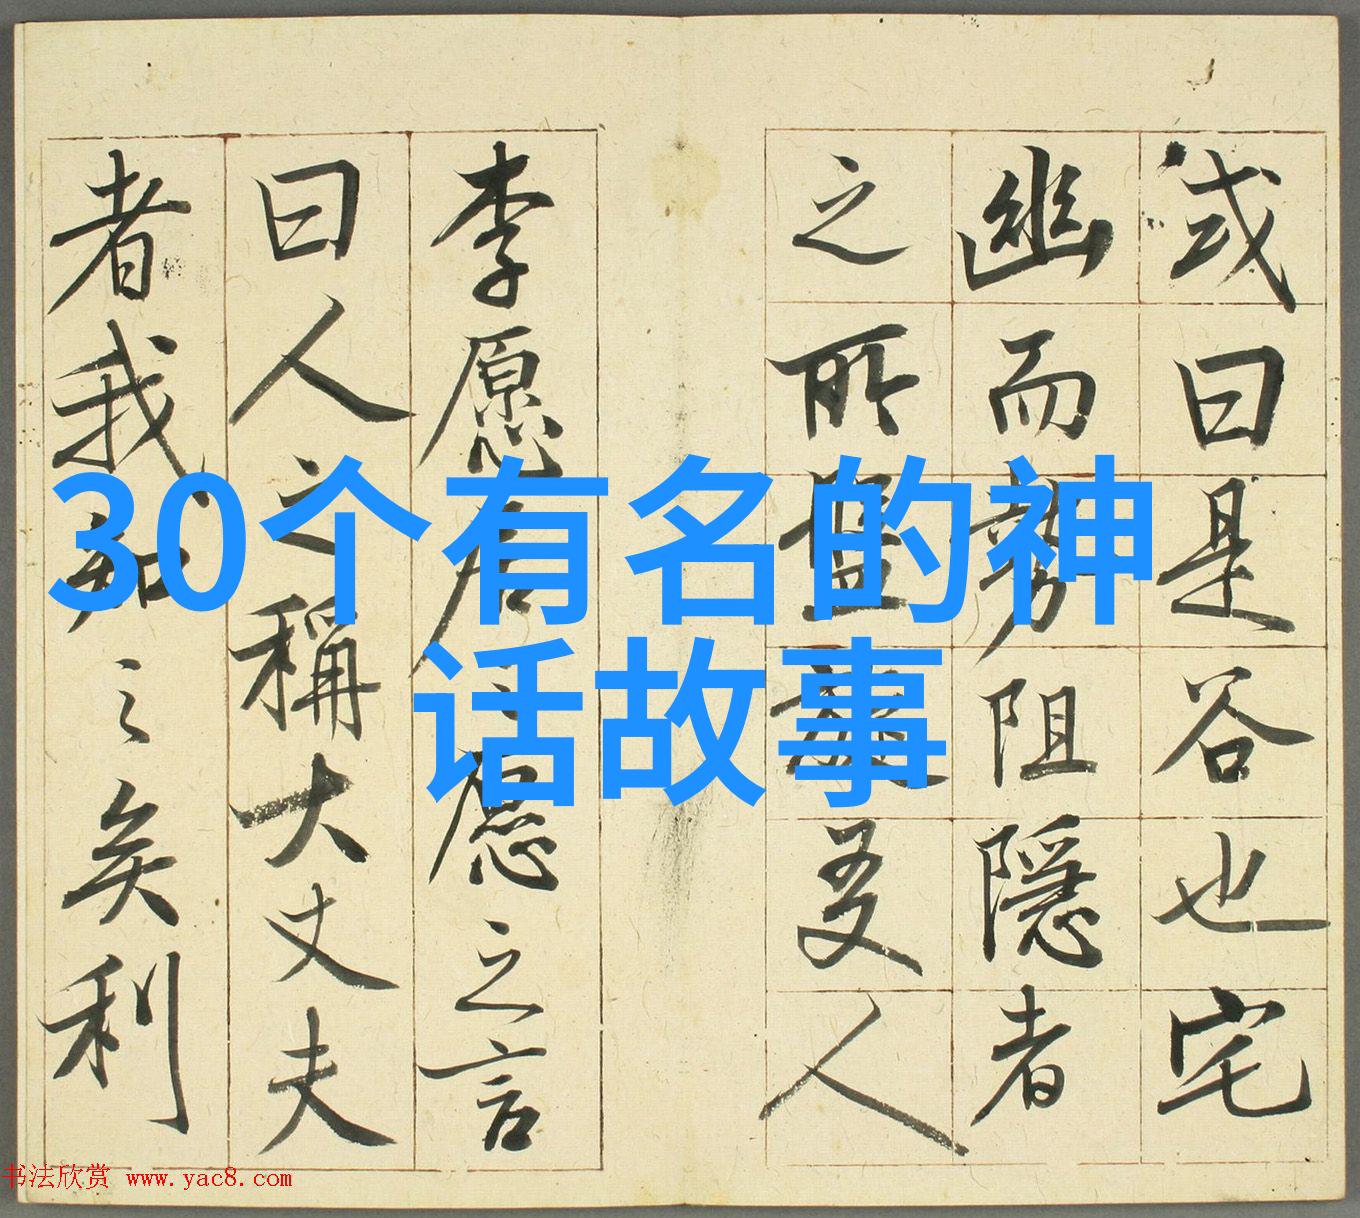 或曰是谷也宅
幽而勢阻隱者
之所盤旋友人
李愿居之愿之言
曰人之稱大丈夫
者我知之矣利
30个有名的神
话故事
书法欣赏 www.yac8.com